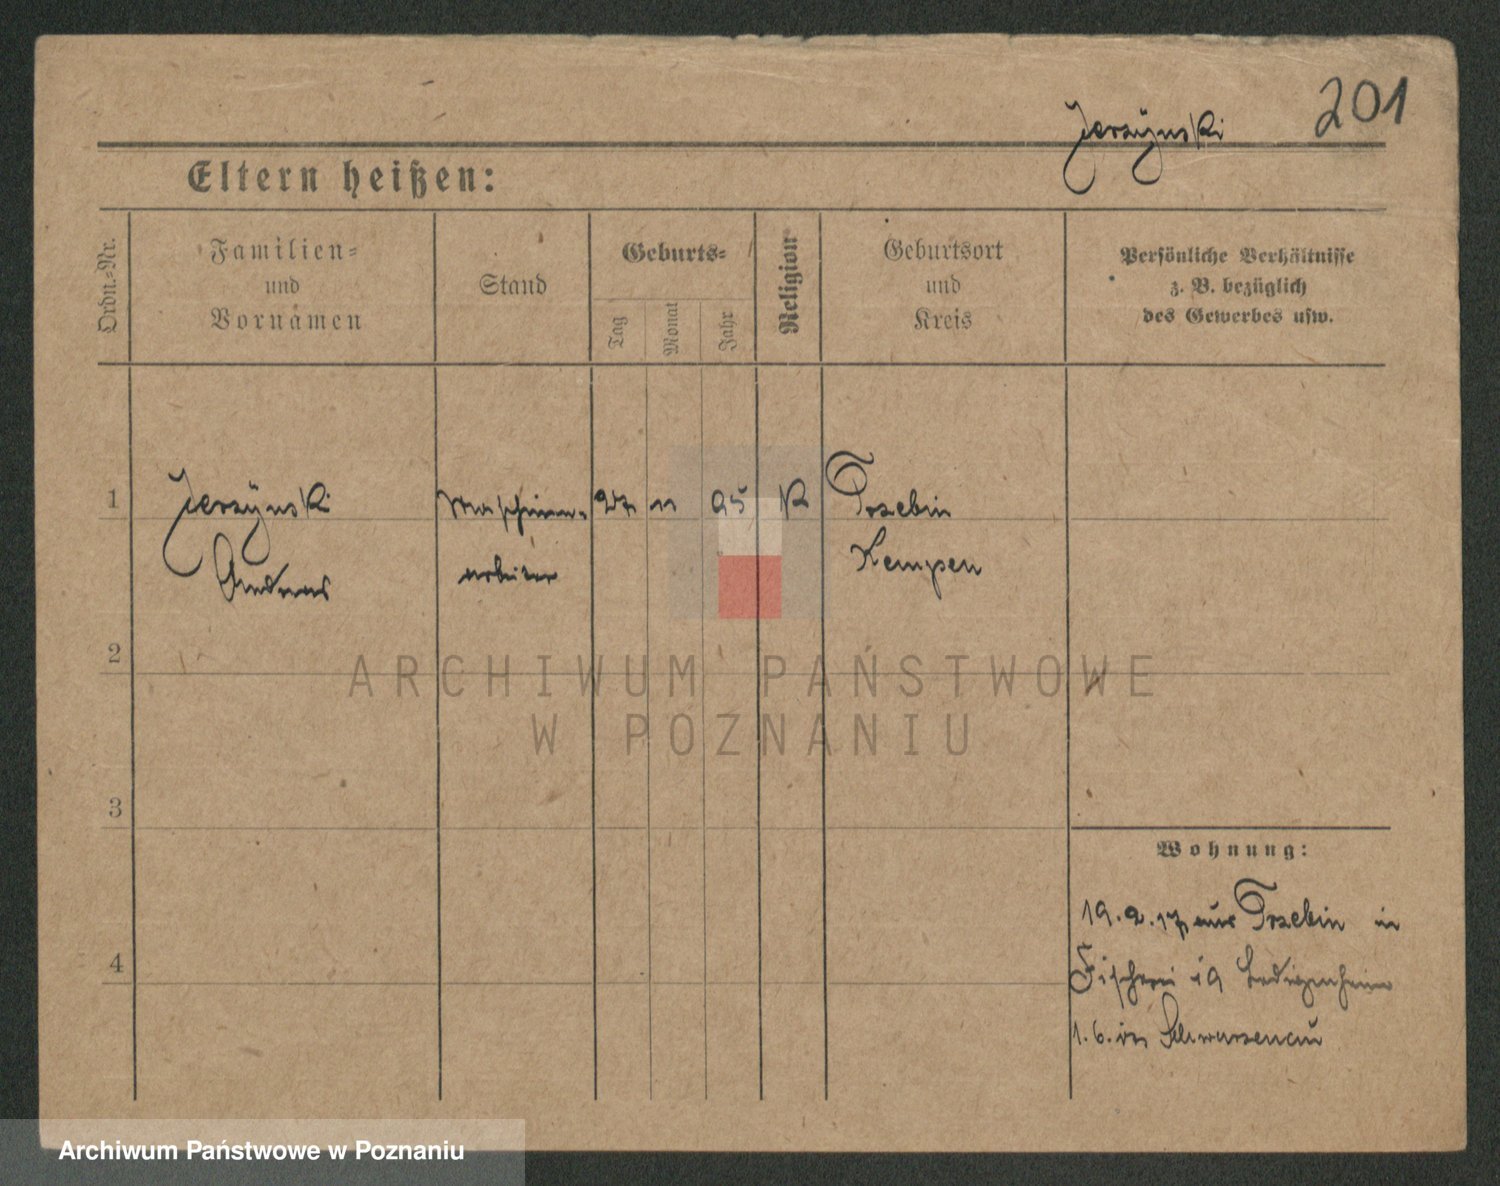 201
Jerzÿnski
Eltern heißen:
Ordn.-Nr.
Familien-
und
Vornamen
Stand
Geburts-
Tag
Monat
Jahr
Religion
Geburtsort
und
Kreis
Persönliche Verhältnisse
z. B. bezüglich
des Gewerbes usw.
1
Jerzÿnski
Andreas
Maschinen-
arbeiter
27
11
95
K
Trzebin
Kempen
2
ARCHIWUM PAŃSTWOWE
W POZNANIU
3
Wohnung:
19.2.17 aus Trzebin in
Fischerei 19 Ledigenheim
4
1.6. in Schwarzenau
Archiwum Państwowe w Poznaniu